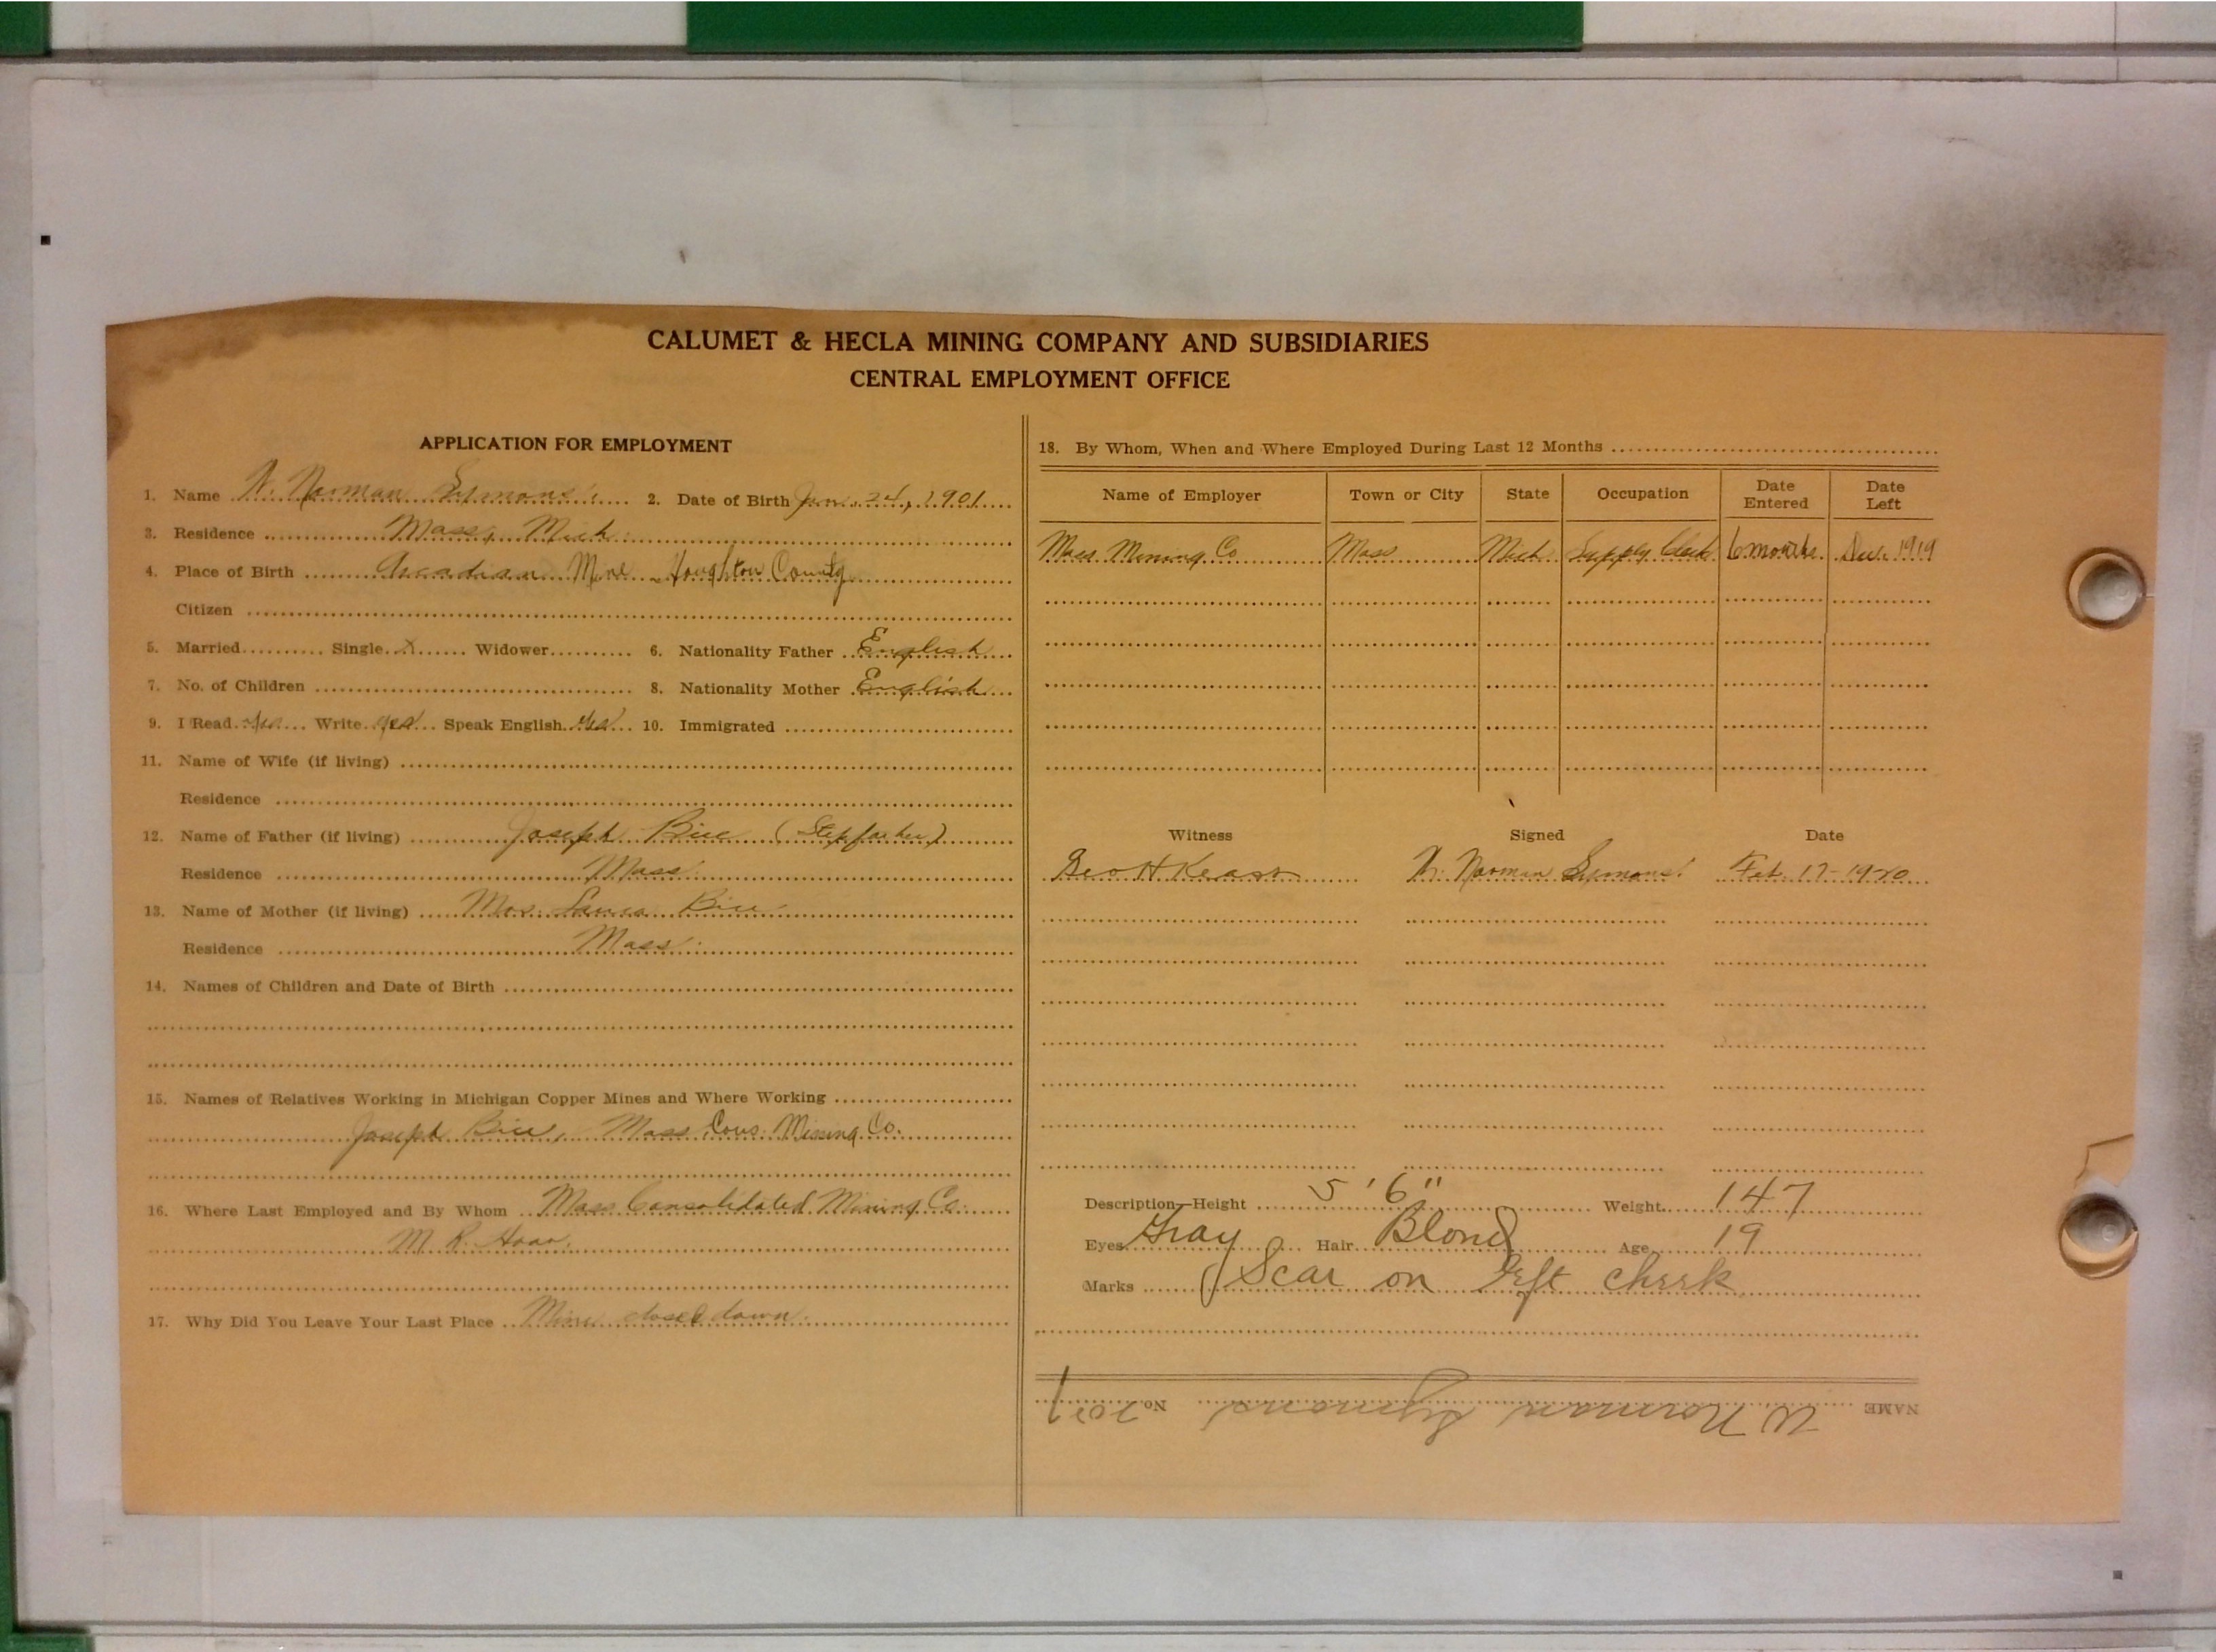 CALUMET & HECLA MINING COMPANY AND SUBSIDIARIES
CENTRAL EMPLOYMENT OFFICE
APPLICATION FOR EMPLOYMENT
1. Name W. Norman Symons 2. Date of Birth Jan. 24, 1901
3. Residence Mass, Mich.
4. Place of Birth Arcadian Mine Houghton County
Citizen
5. Married Single X Widower 6. Nationality Father English
7. No. of Children 8. Nationality Mother English
9. I Read yes Write yes Speak English yes 10. Immigrated
11. Name of Wife (if living)
Residence
12. Name of Father (if living) Joseph Bice (Stepfather)
Residence Mass
13. Name of Mother (if living) Mrs. Laura Bice
Residence Mass
14. Names of Children and Date of Birth
15. Names of Relatives Working in Michigan Copper Mines and Where Working
Joseph Bice, Mass Cons. Mining Co.
16. Where Last Employed and By Whom Mass Consolidated Mining Co.
M. R.
17. Why Did You Leave Your Last Place Mine closed down.
18. By Whom, When and Where Employed During Last 12 Months
Name of Employer Town or City State Occupation Date Entered Date Left
Mass Mining Co Mass Mich Supply Clerk 6 months. Dec. 1919
Witness Signed Date
Geo H Keast W. Norman Symons Feb. 17-1920
Description—Height 5'6" Weight 147
Eyes Gray Hair Blond Age 19
Marks Scar on left cheek
NAME W Norman Symons No.